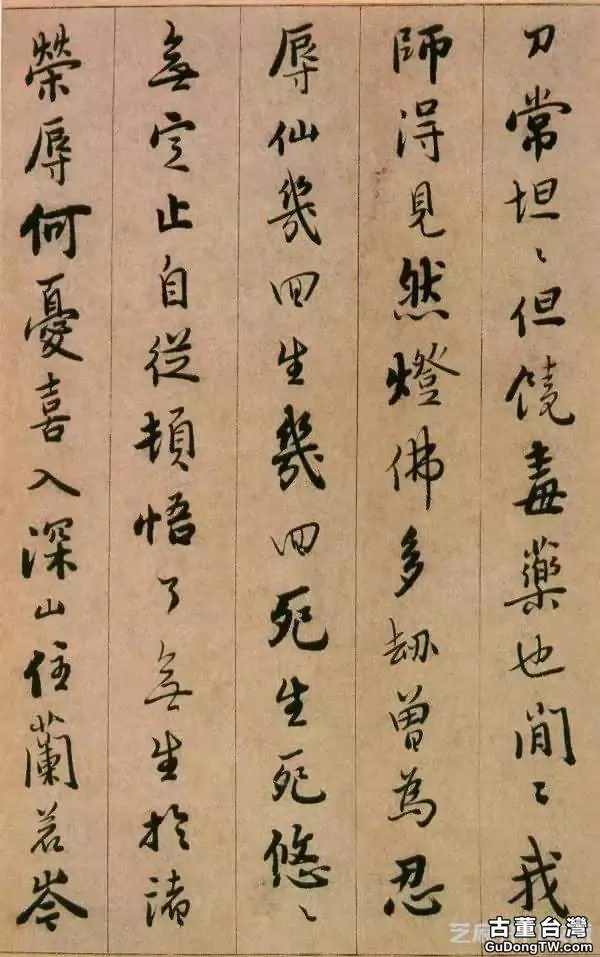 刀常坦〻但饒毒藥也閒〻我
師得見然燈佛多劫曾為忍
辱仙幾回生幾回死生死悠〻
無定止自從頓悟了無生於諸
榮辱何憂喜入深山住蘭若岑
古董台灣
GuDongTW.com